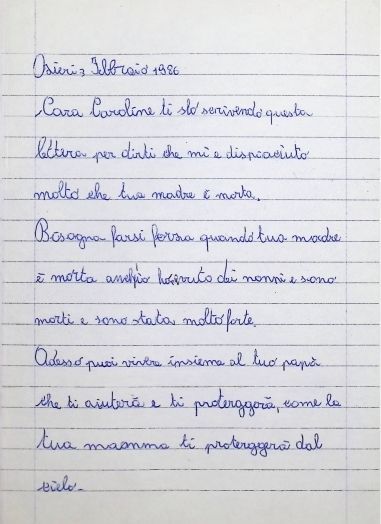 Osieri 3 Febbraio 1986
Cara Caroline ti sto scrivendo questa
lettera per dirti che mi e dispiaciuto
molto che tua madre è morta.
Bosogna farsi forza quando tua madre
è morta anch'io ho avuto dei nonni e sono
morti e sono stata molto forte.
Adesso puoi vivere insieme al tuo papà
che ti aiuterà e ti proterggerà, come la
tua mamma ti proterggerà dal
cielo.